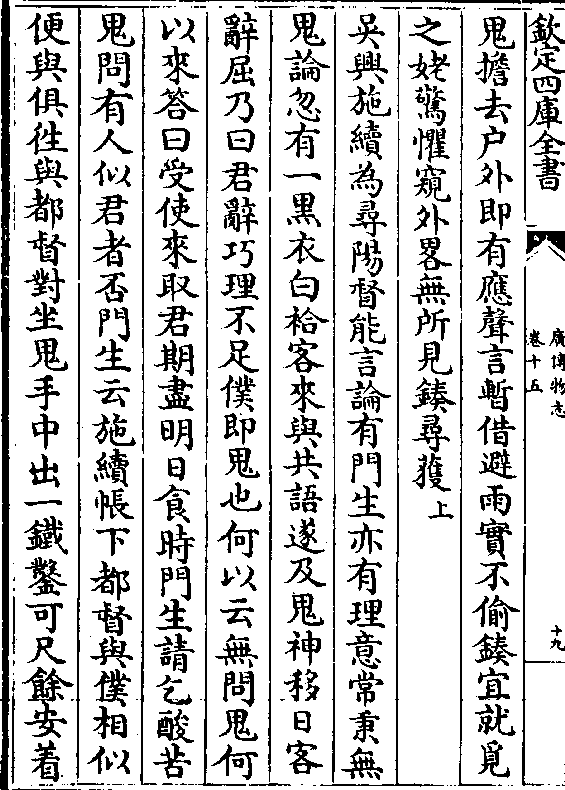 欽定四庫全書
廣博物志
卷十五
十九
鬼擔去户外即有應聲言暫借避雨實不偷鏤宜就覓
之姥驚懼窺外畧無所見鏤尋獲上
吳興施續為尋陽督能言論有門生亦有理意常秉無
鬼論忽有一黒衣白袷客來與共語遂及鬼神移日客
辭屈乃曰君辭巧理不足僕即鬼也何以云無問鬼何
以來答曰受使來取君期盡明日食時門生請乞酸苦
鬼問有人似君者否門生云施續帳下都督與僕相似
便與俱徃與都督對坐鬼手中出一鐵鑿可尺餘安着